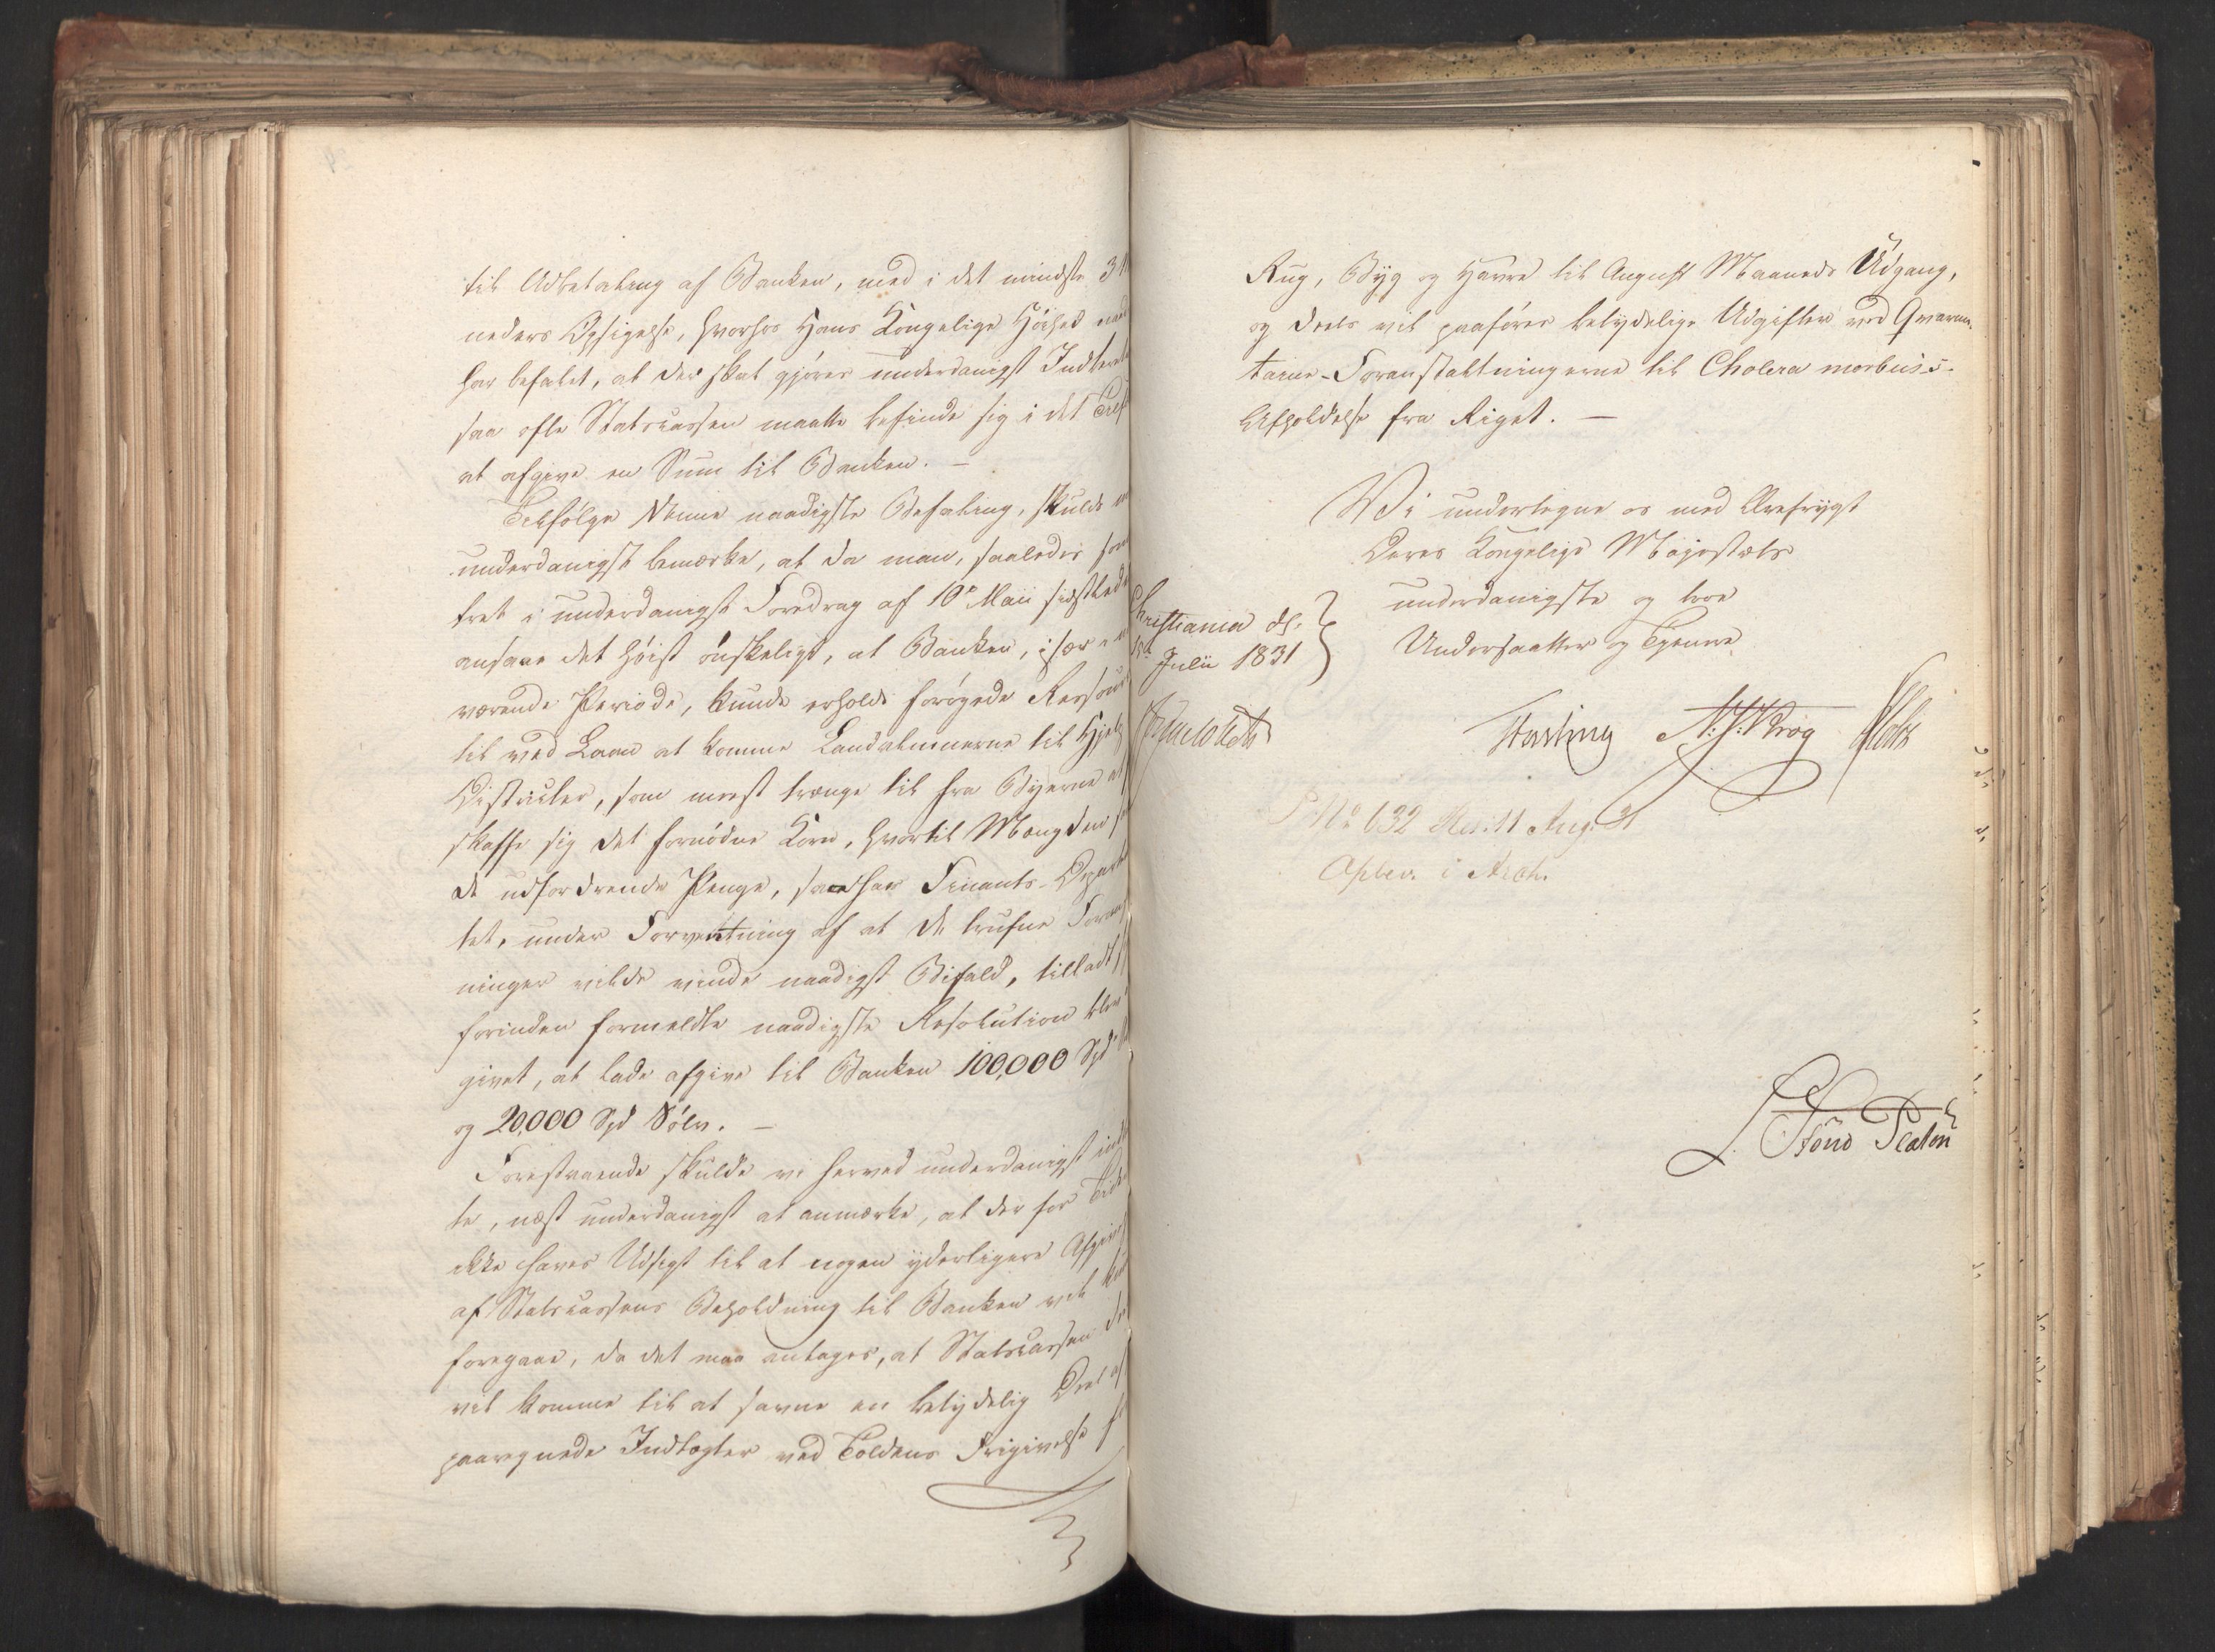 til Udbetaling af Banken, med i det mindste 3
neders Opsigelse, hvorhos Hans Kongelige Höihed
har befalet, at der skal gjöres underdanigst Indberet
saa ofte Statscassen maatte befinde sig i det
at afgive en Sum til Banken. –
Tilfölge denne naadigste Befaling, skulde
underdanigst bemærke, at da man, saaledes som
tret i underdanigst Foredrag af 10de Maii sidstled
ansaae det höist önskeligt, at Banken, især
værende Periode, kunde erholde forögede
til ved Laan at komme Landalmuerne til Hjelp
Districter, som meest trænge til fra Byerne at
skaffe sig det fornödne Korn, hvortil Mængden
de udfordrende Penge, saa har Finants-Depart
tet, under Forventning af at de trufne
ninger vilde vinde naadigst Bifald, tilladt
forinden formeldte naadigste Resolution blev
givet, at lade afgive til Banken 100,000 Spd
og 20,000 Spd Sölv. –
Forestaaende skulde vi herved underdanigst
te, næst underdanigst at anmærke, at der for
ikke haves Udsigt til at nogen yderligere
af Statscassens Beholdning til Banken vil
foregaae, da det maa antages, at Statscassen
vil komme til at savne en betydelig Deel af
paaregnede Indtægter ved Toldens Frigivelse
Rug, Byg og Havre til August Maaneds Udgang,
og deels vil paaföres betydelige Udgifter ved Qvaran-
taine-Foranstaltningerne til Cholera morbus's
Afholdelse fra Riget. –
Vi undertegne os med Ærefrygt
Deres Kongelige Majestæts
underdanigste og troe
Undersaatter og Tjenere
Christiania d.
Julii 1831
Fasting
Krog
P No 632 Res: 11 Aug. 31
Aflev. i Arch.
Platou